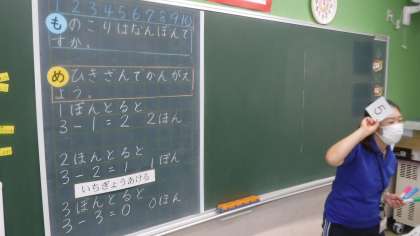 1 2 3 4 5 6 7 8 9 10
も のこりはなんぼんで
すか。
め ひきざんでかんがえ
よう。
1ぽんとると
3-1=2 2ほん
2ほんとると
3-2=1 1ぽん
いちぎょうあける
3ぼんとると
3-3=0 0ほん
5